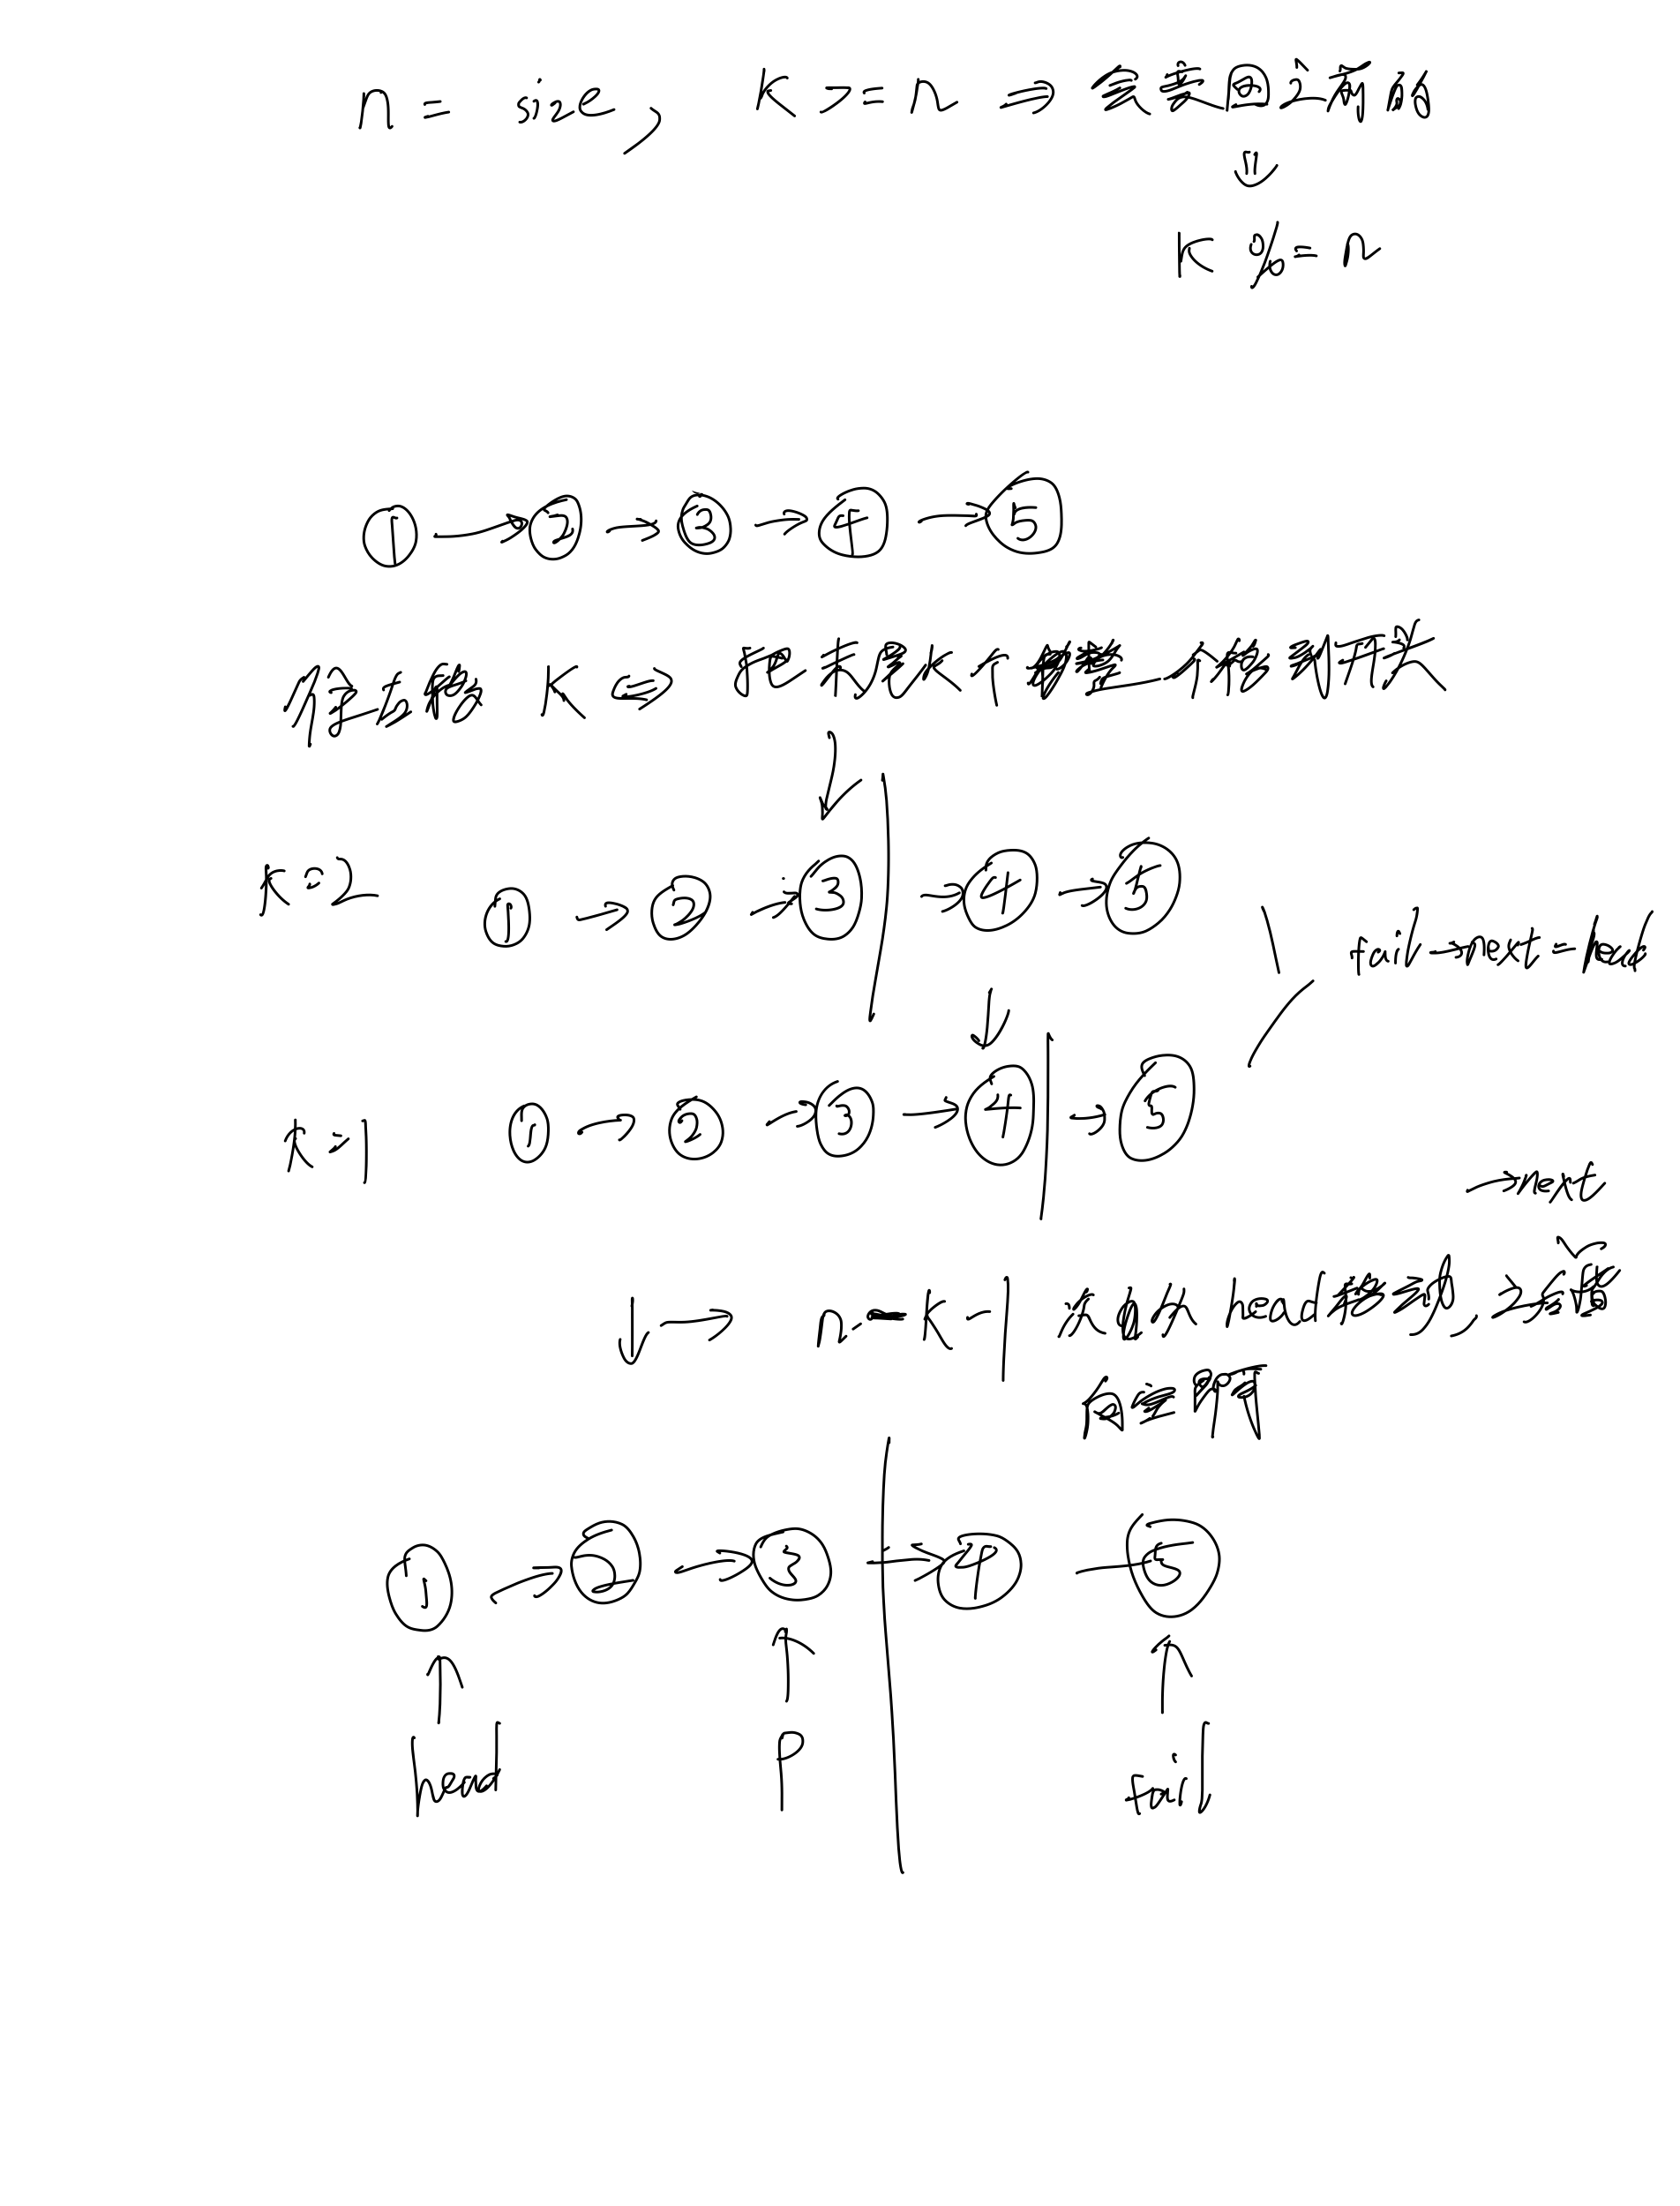 n = size, K >= n ⇒ 会套回之前的
⇓
K %= n
1 → 2 → 3 → 4 → 5
往右移 K ⇔ 把末尾K个整体一个移到开头
K=2 1 → 2 → 3 → 4 → 5
tail→next=head
K=1 1 → 2 → 3 → 4 → 5
→next
↓ → n-K-1 次从head移动,
向空即可
1 → 2 → 3 → 4 → 5
head P tail